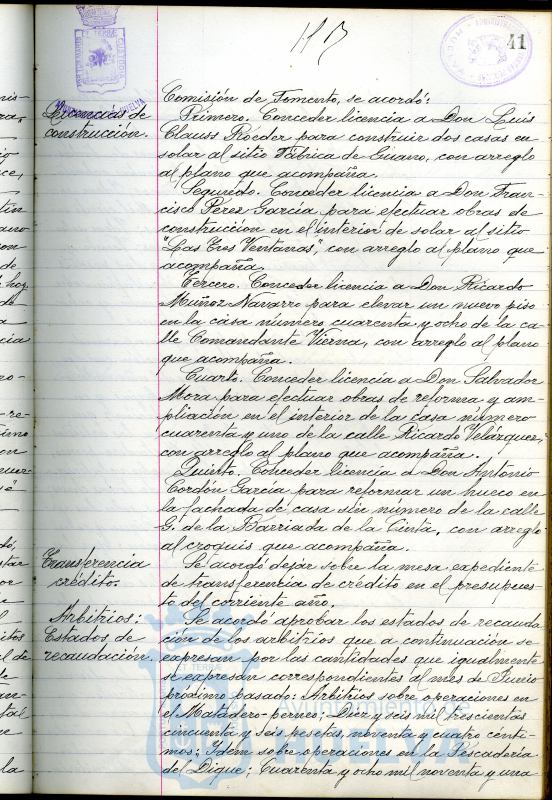 41
Comisión de Fomento, se acordó:
Licencias de
construcción.
Primero. Conceder licencia a Don Luis
Clauss Roeder para construir dos casas en
solar al sitio Fábrica de Guano, con arreglo
al plano que acompaña.
Segundo. Conceder licencia a Don Fran-
cisco Perez García para efectuar obras de
construcción en el interior de solar al sitio
"Las Tres Ventanas", con arreglo al plano que
acompaña.
Tercero. Conceder licencia a Don Ricardo
Muñoz Navarro para elevar un nuevo piso
en la casa número cuarenta y ocho de la ca-
lle Comandante Vierna, con arreglo al plano
que acompaña.
Cuarto. Conceder licencia a Don Salvador
Mora para efectuar obras de reforma y am-
pliación en el interior de la casa número
cuarenta y uno de la calle Ricardo Velázquez,
con arreglo al plano que acompaña.
Quinto. Conceder licencia a Don Antonio
Cordón García para reformar un hueco en
la fachada de casa sin número de la calle
G. de la Barriada de la Cinta, con arreglo
al croquis que acompaña.
Transferencia
crédito.
Se acordó dejar sobre la mesa expediente
de transferencia de crédito en el presupues-
to del corriente año.
Arbitrios:
Estados de
recaudación.
Se acordó aprobar los estados de recauda-
ción de los arbitrios que a continuación se
expresan por las cantidades que igualmente
se expresan correspondientes al mes de Junio
próximo pasado: Arbitrios sobre operaciones en
el Matadero perneo; Diez y seis mil trescientas
cincuenta y seis pesetas, noventa y cuatro cénti-
mos; Idem sobre operaciones en la Pescadería
del Dique; Cuarenta y ocho mil noventa y una
Ayuntamiento de